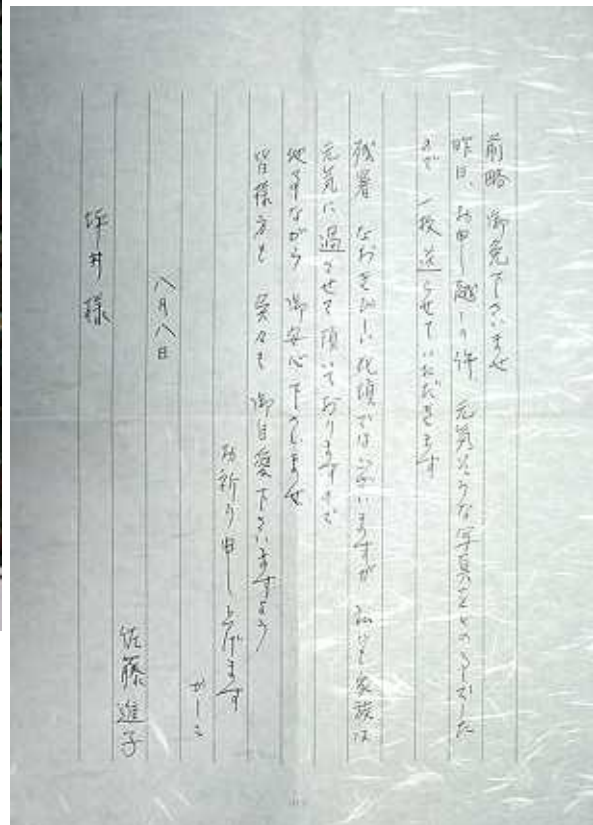 前略 御免下さいませ
昨日、お申し越しの件、元気そうな写真とのことでした
ので 一枚送らせていただきます
残暑 なおきびしい此頃では ございますが 私ども家族は
元気に過させて頂いておりますので
他事ながら 御安心下さいませ
皆様方も 呉々も 御自愛下さいますよう
お祈り申し上げます
かしこ
八月八日
佐藤進子
坪井様